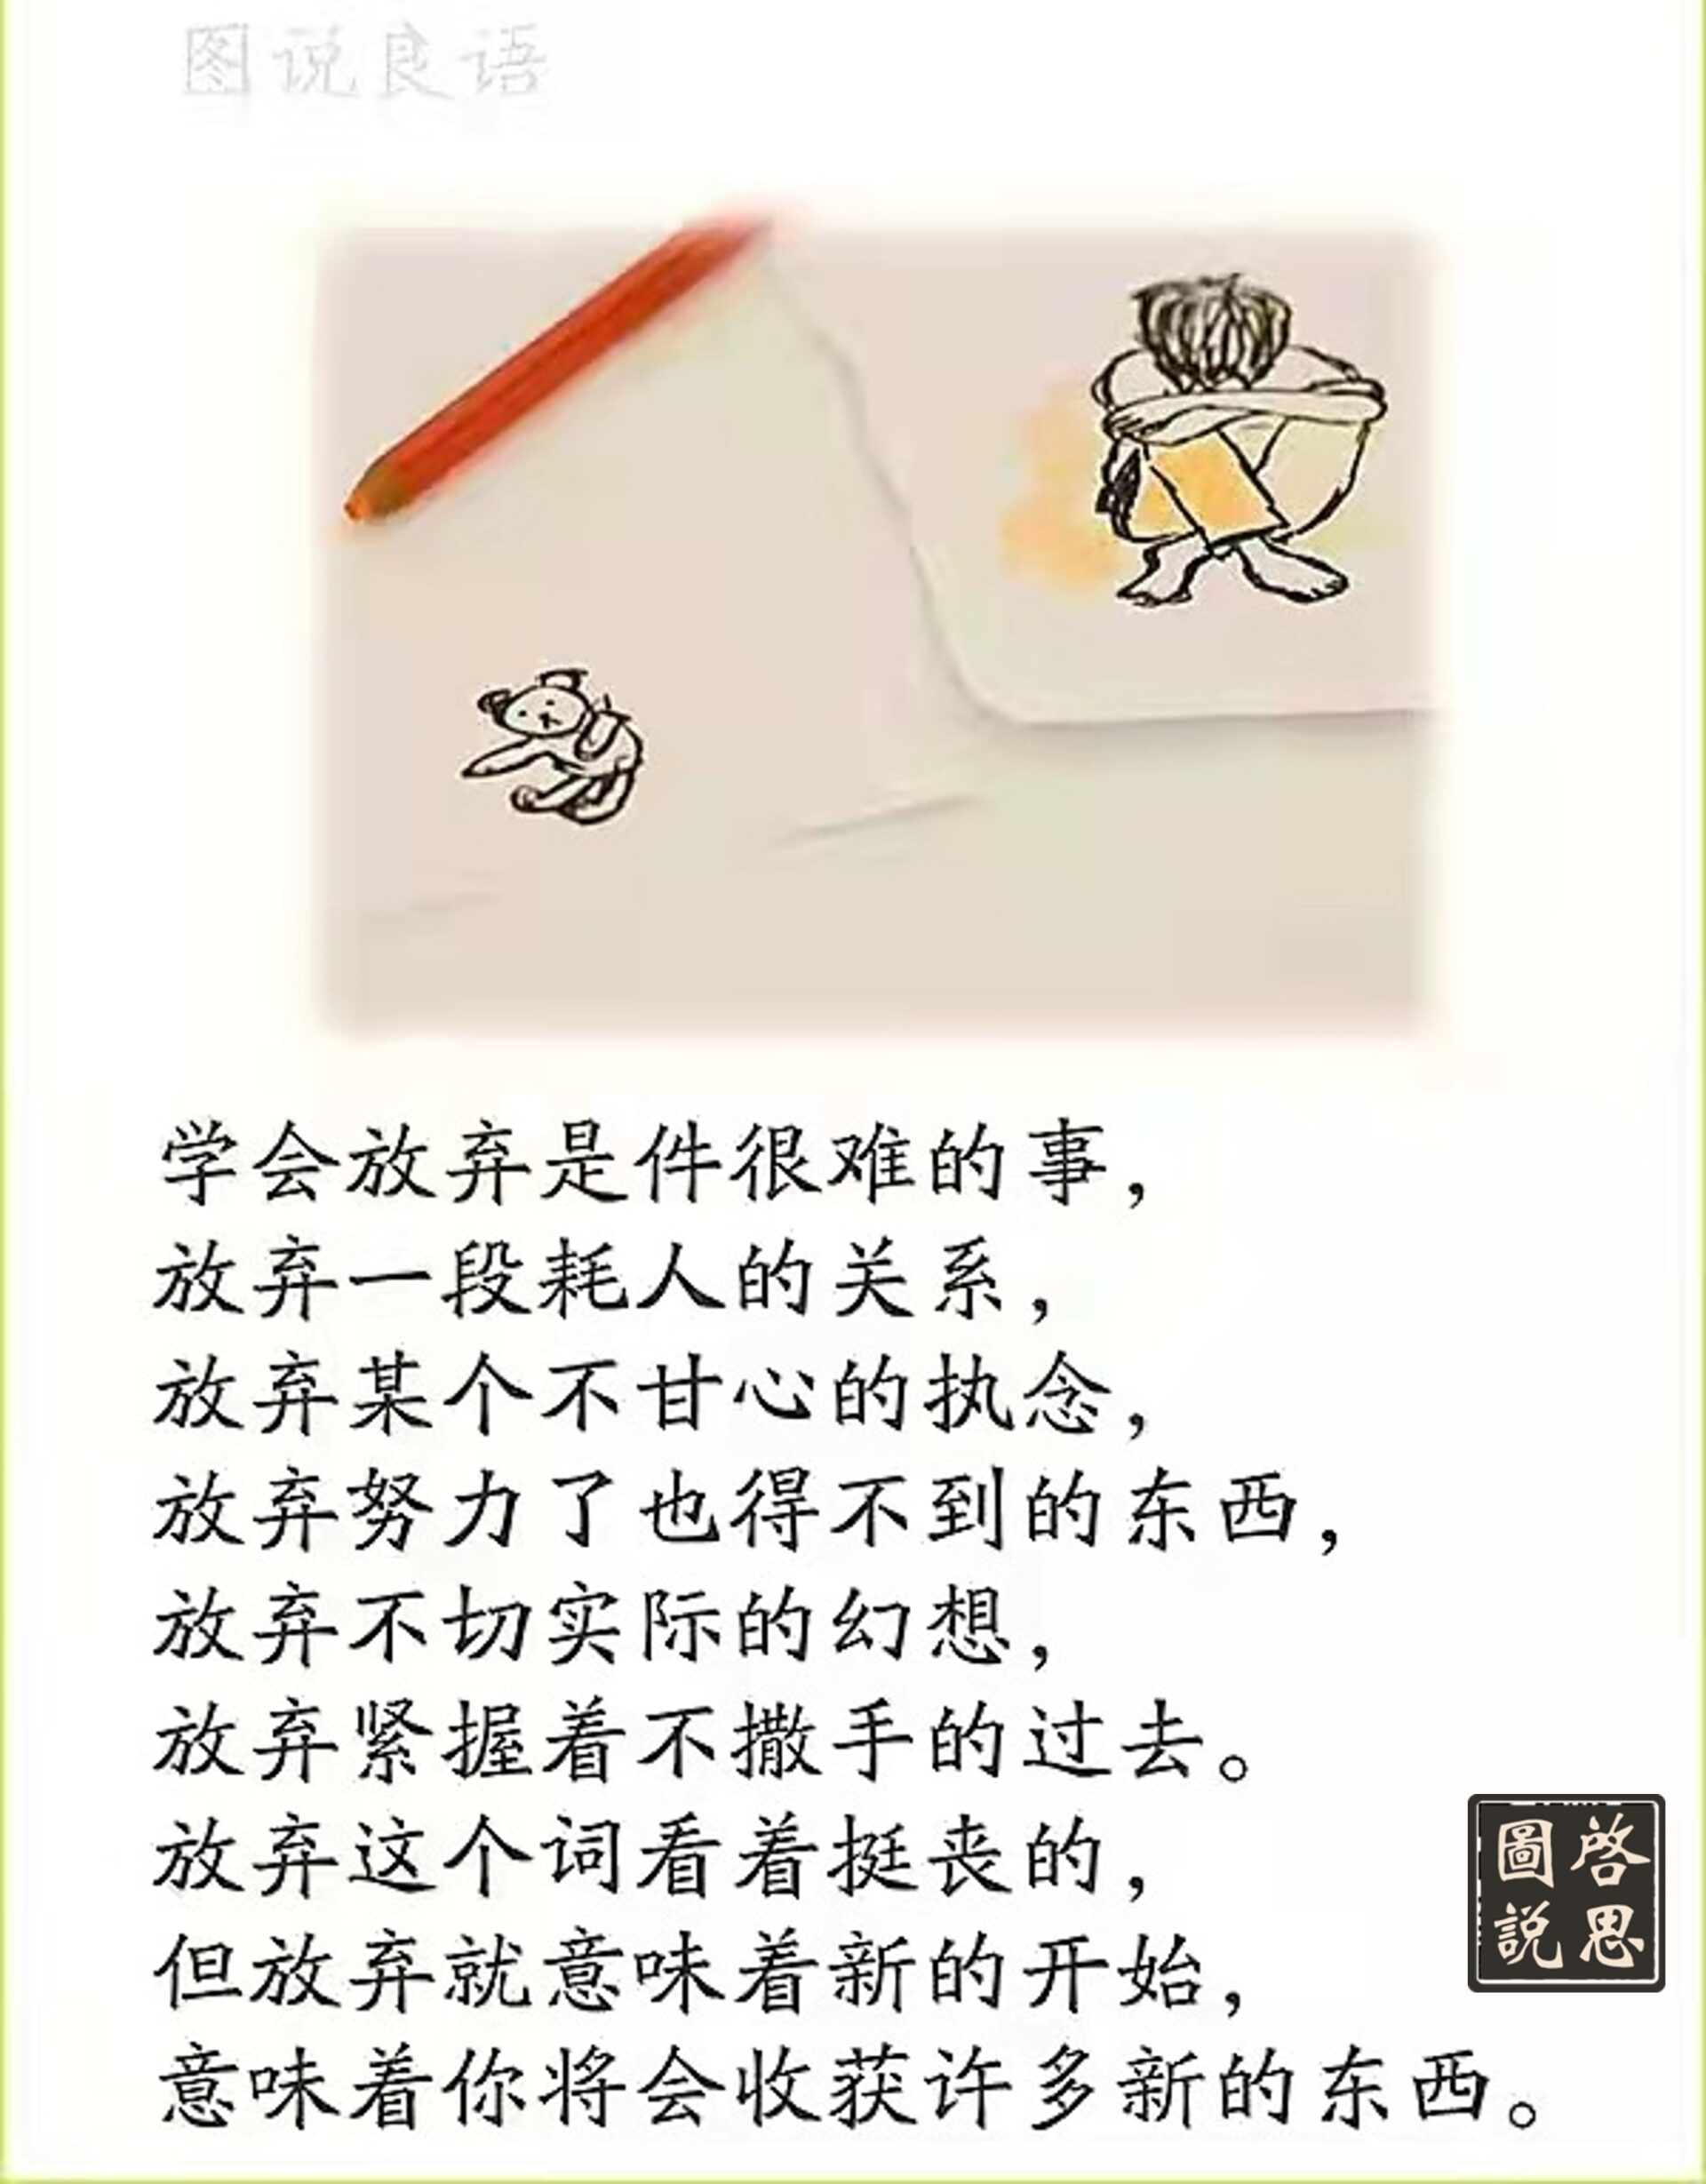 图说良语
学会放弃是件很难的事，
放弃一段耗人的关系，
放弃某个不甘心的执念，
放弃努力了也得不到的东西，
放弃不切实际的幻想，
放弃紧握着不撒手的过去。
放弃这个词看着挺丧的，
但放弃就意味着新的开始，
意味着你将会收获许多新的东西。
啓思
圖說